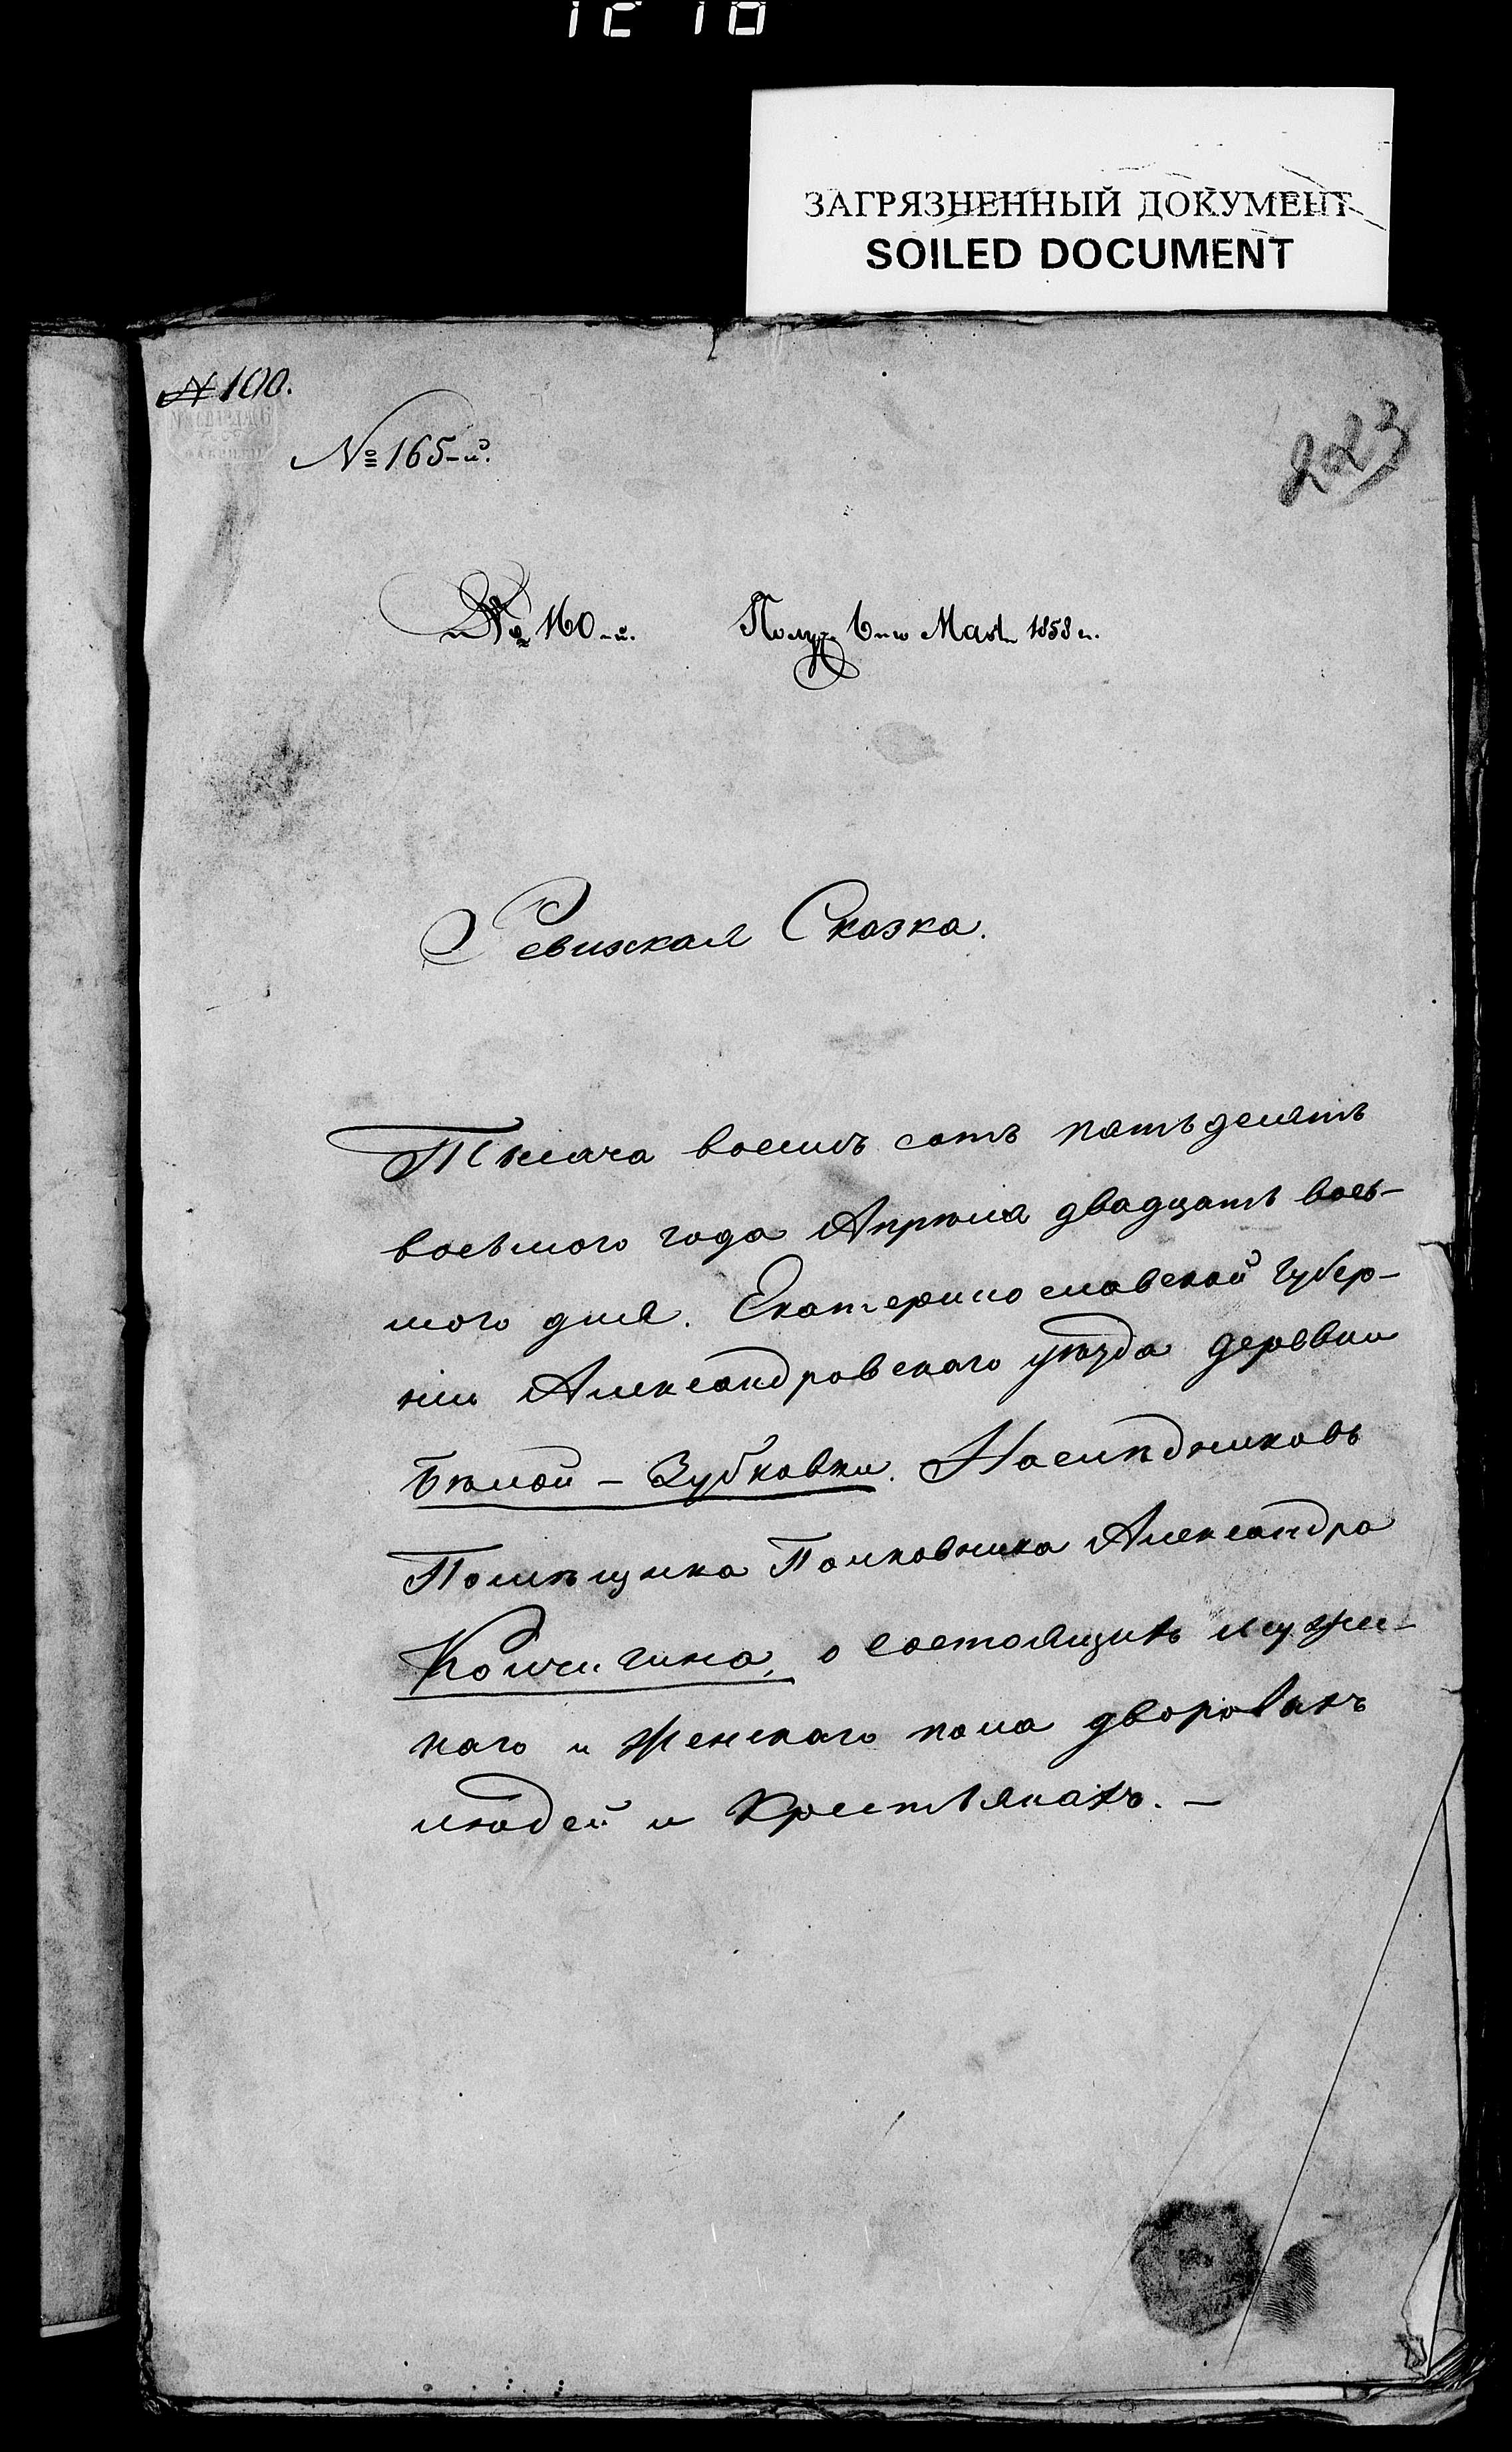 ЗАГРЯЗНЕННЫЙ ДОКУМЕНТ
SOILED DOCUMENT
№ 100.
№ 165-й.
223
№ 160-й. Получ. 6-го Мая 1858 г.
Ревижская Сказка.
Тысяча восемь сотъ пятьдесятъ
восьмого года Апрѣля двадцать вось-
мого дня. Екатеринославской Губер-
ніи Александровскаго уѣзда деревни
Бѣлой - Зубковки. Наслѣдниковъ
Помѣщика Полковника Александра
о состоящихъ мужес-
каго и женскаго пола дворовыхъ
людей и Крестьянахъ. —